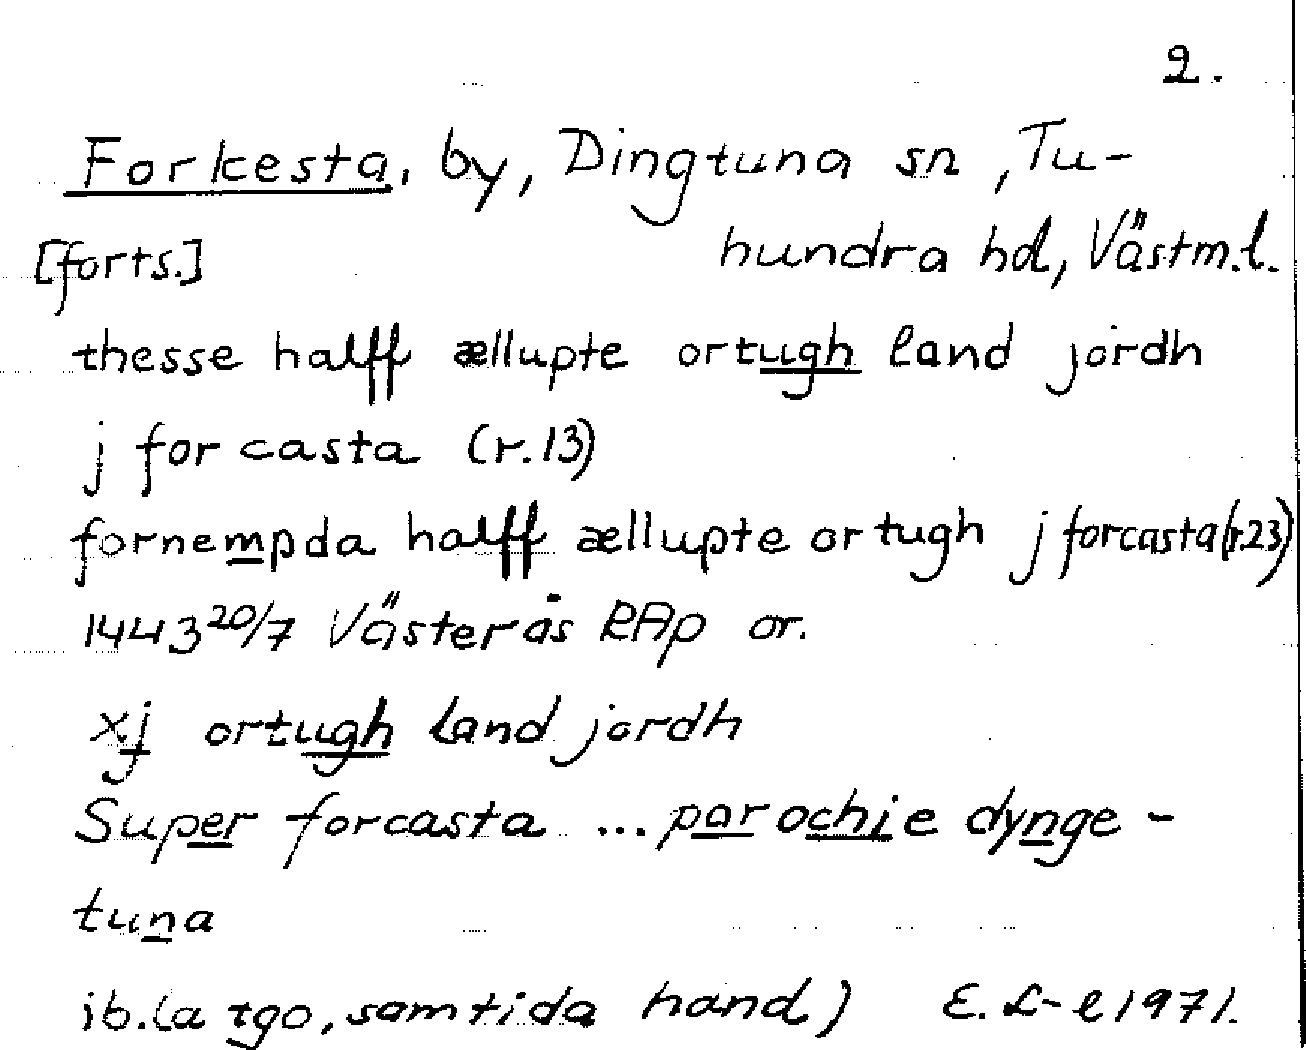 2.
Forkesta, by, Dingtuna sn, Tu-
[forts.] hundra hd, Västm.l.
thesse halff ællupte ortugh land jordh
j for casta (r.13)
fornempda halff ællupte ortugh j forcasta (r.23)
1443 20/7 Västerås RAp or.
xj ortugh land jordh
Super forcasta ... parochie dynge-
tuna
ib. (a tgo, samtida hand) E. L-l 1971.